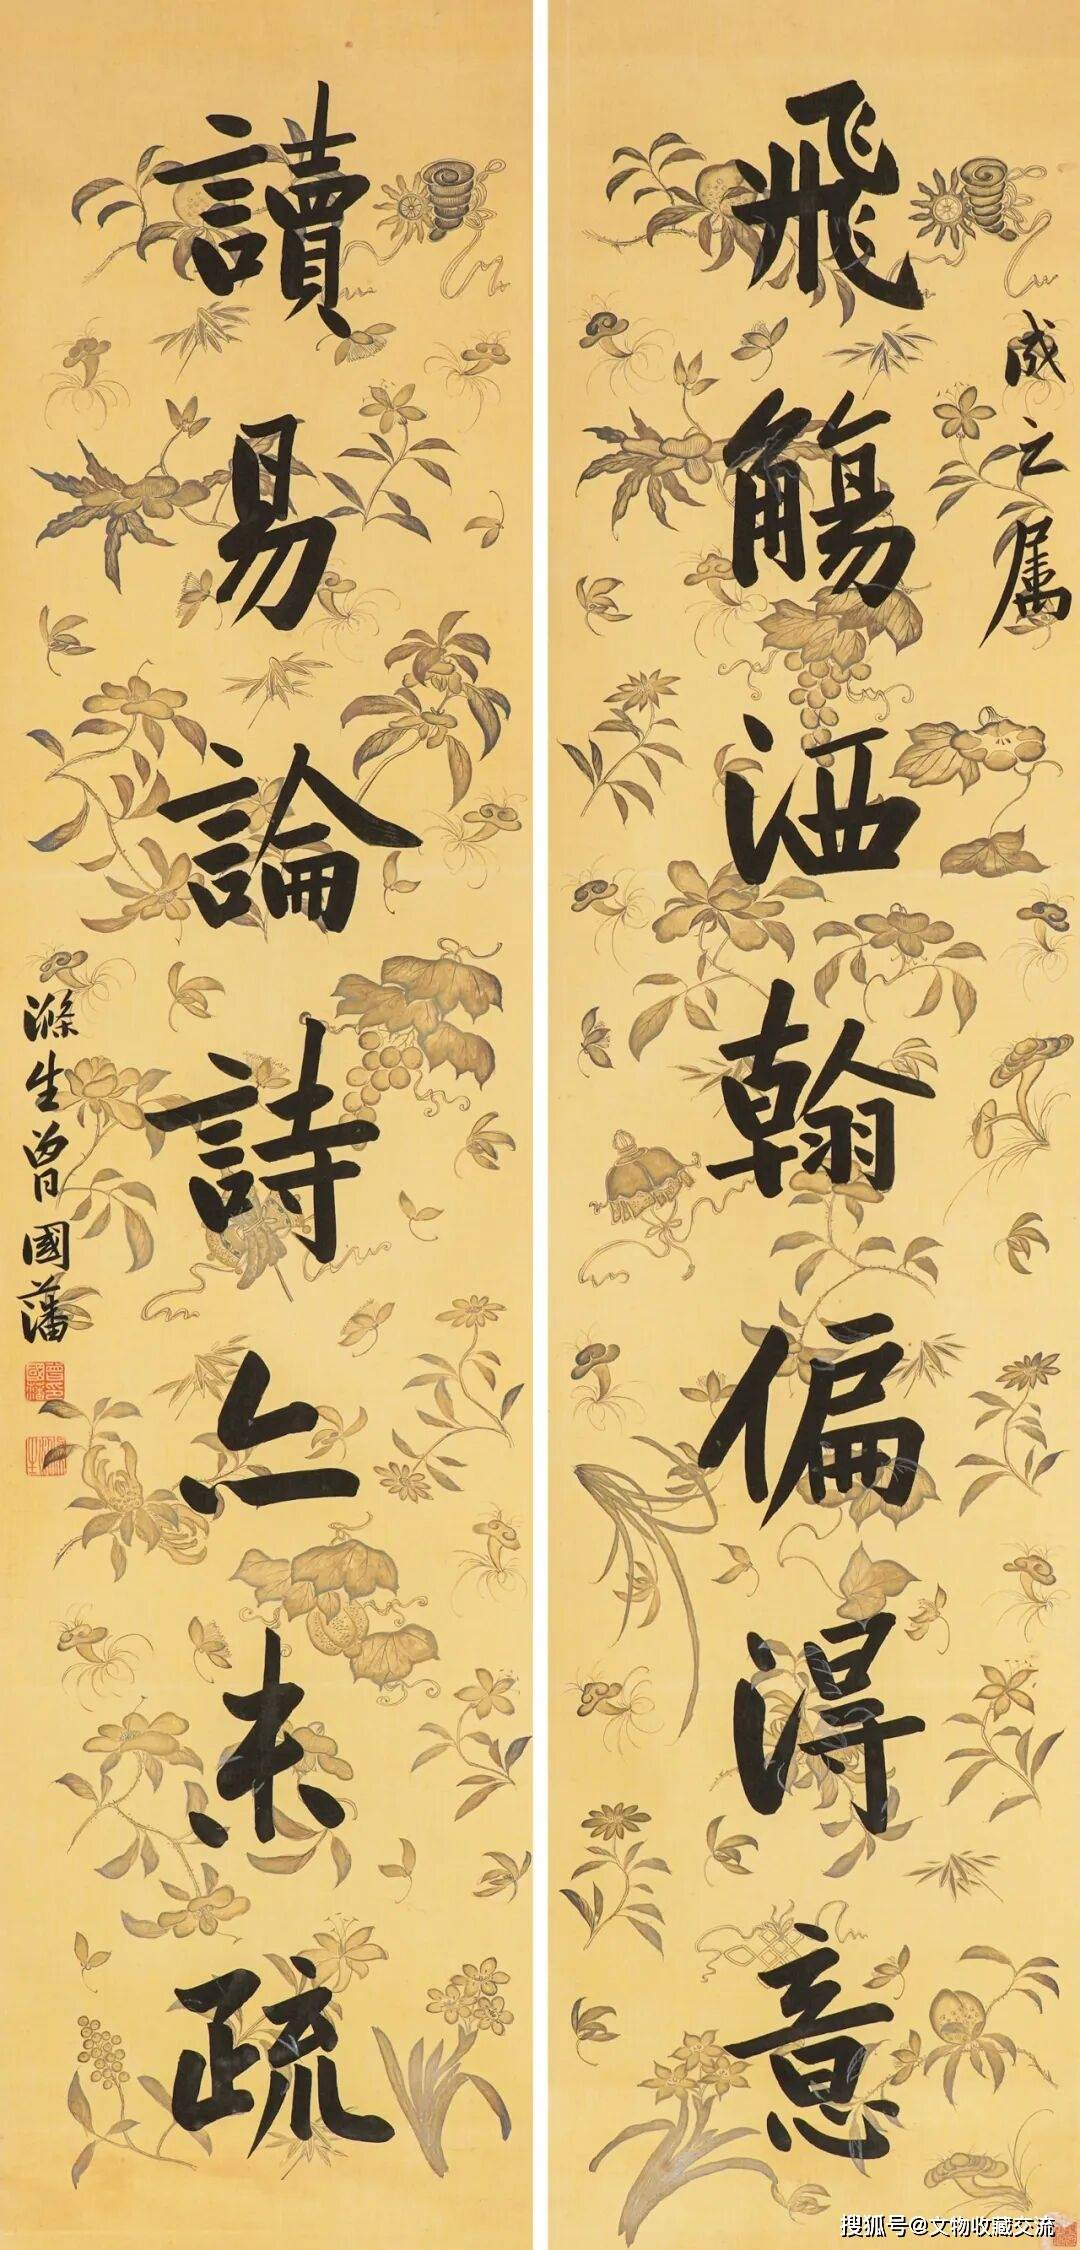 成之属
飛觴洒翰偏得意
讀易論詩亦未疏
滌生曾國藩
搜狐号@文物收藏交流